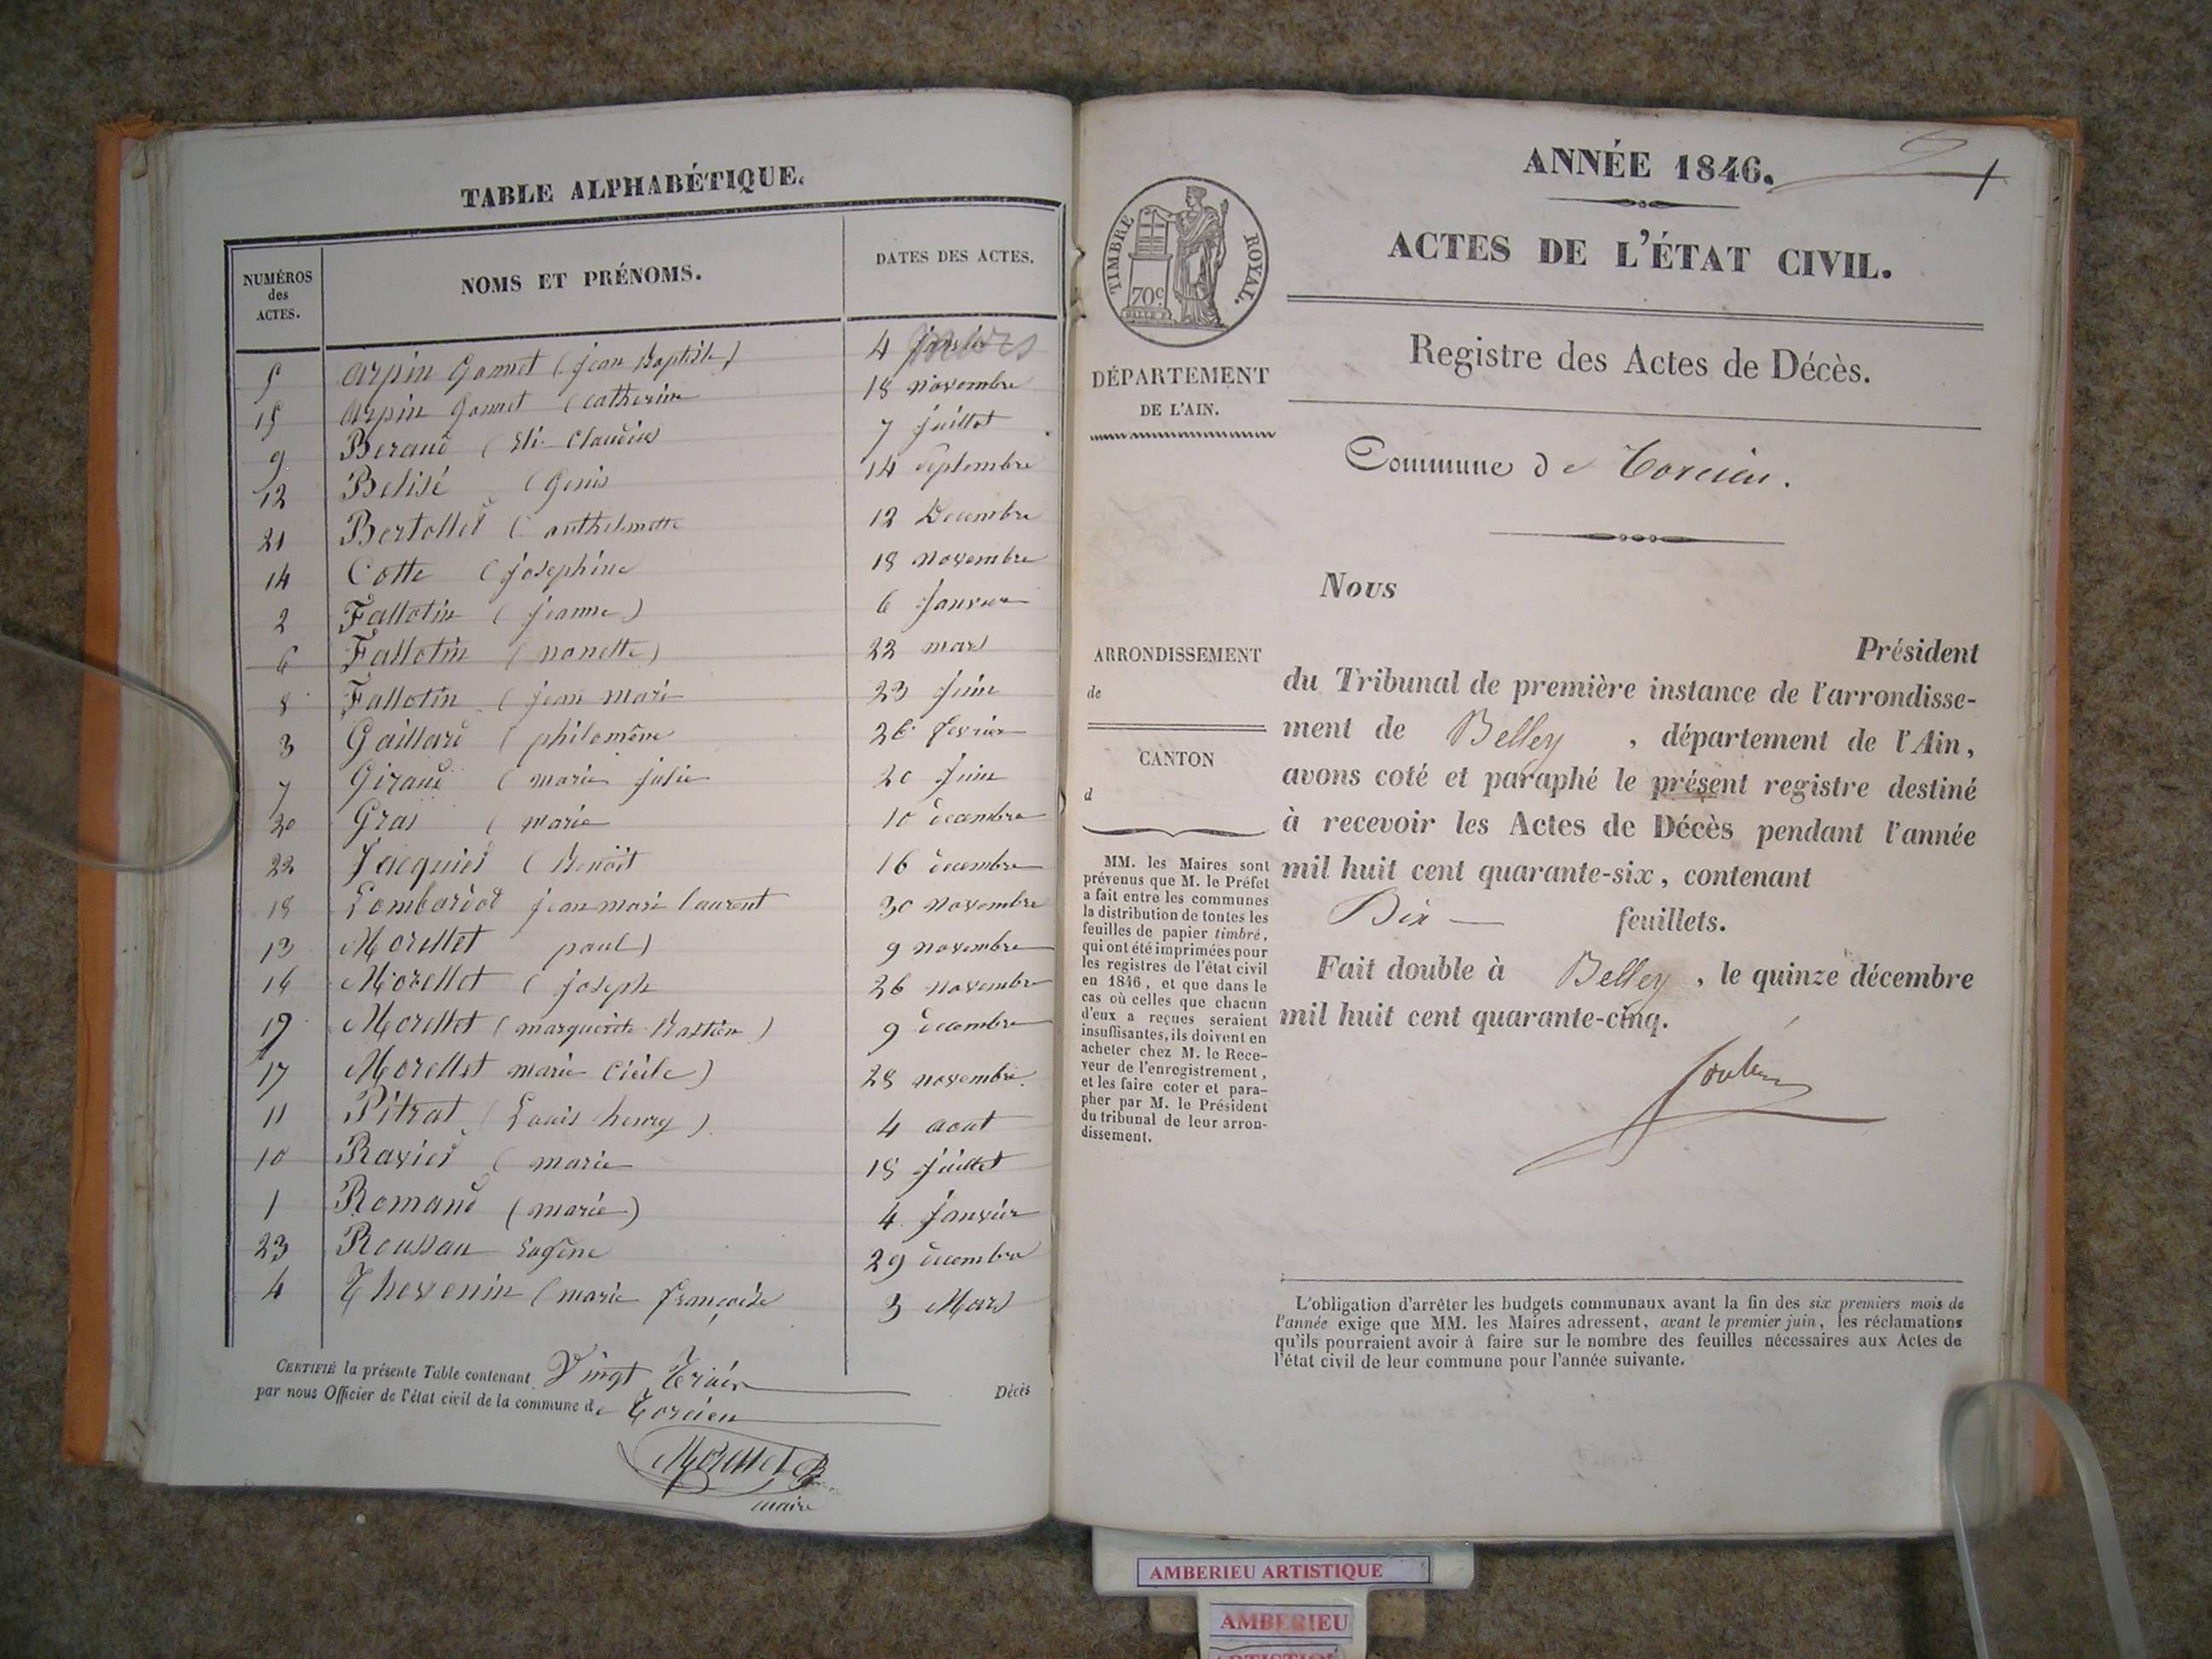 TABLE ALPHABÉTIQUE.
NUMÉROS des ACTES. NOMS ET PRÉNOMS. DATES DES ACTES.
5 Arpin Gonnet (jean Baptiste) 4 mars
15 Arpin Gonnet (Catherine 18 novembre
9 Beraud ( Claudine 7 juillet
12 Belisé (Genis 14 Septembre
21 Bertollet (anthelmette 12 Decembre
14 Cotte (Josephine 18 novembre
2 Fallotin (jeanne) 6 Janvier
6 Fallotin (nanette) 22 mars
8 Fallotin (jean marie 23 Juin
3 Gaillard (philomène 26 fevrier
7 Giraud (marie julie 20 Juin
20 Gras (marie 10 decembre
22 Jacquier (Benoit 16 decembre
18 Lombardot jean marie laurent 30 novembre
13 Morellet paul) 9 novembre
16 Morellet (joseph 26 novembre
19 Morellet (marguerite Bastion) 9 decembre
17 Morellet marie Cécile) 28 novembre
11 Pitrat (Louis henry) 4 aout
10 Ravier (marie 18 juillet
1 Romand (marie) 4 Janvier
23 Roussau Eugène 29 decembre
4 Thevenin (marie françoise 3 Mars
CERTIFIÉ la présente Table contenant Vingt Trois Décès
par nous Officier de l'état civil de la commune de Torcieu
Morellet
maire
ANNÉE 1846.
1
ACTES DE L'ÉTAT CIVIL.
TIMBRE ROYAL.
70c
Registre des Actes de Décès.
DÉPARTEMENT
DE L'AIN.
Commune de Torcieu.
Nous
Président
ARRONDISSEMENT
de
CANTON
d
du Tribunal de première instance de l'arrondisse-
ment de Belley, département de l'Ain,
avons coté et paraphé le présent registre destiné
à recevoir les Actes de Décès pendant l'année
mil huit cent quarante-six, contenant
Dix feuillets.
Fait double à Belley, le quinze décembre
mil huit cent quarante-cinq.
MM. les Maires sont
prévenus que M. le Préfet
a fait entre les communes
la distribution de toutes les
feuilles de papier timbré,
qui ont été imprimées pour
les registres de l'état civil
en 1846, et que dans le
cas où celles que chacun
d'eux a reçues seraient
insuffisantes, ils doivent en
acheter chez M. le Rece-
veur de l'enregistrement,
et les faire coter et para-
pher par M. le Président
du tribunal de leur arron-
dissement.
L'obligation d'arrêter les budgets communaux avant la fin des six premiers mois de
l'année exige que MM. les Maires adressent, avant le premier juin, les réclamations
qu'ils pourraient avoir à faire sur le nombre des feuilles nécessaires aux Actes de
l'état civil de leur commune pour l'année suivante.
AMBERIEU ARTISTIQUE
AMBERIEU
ARTISTIQUE